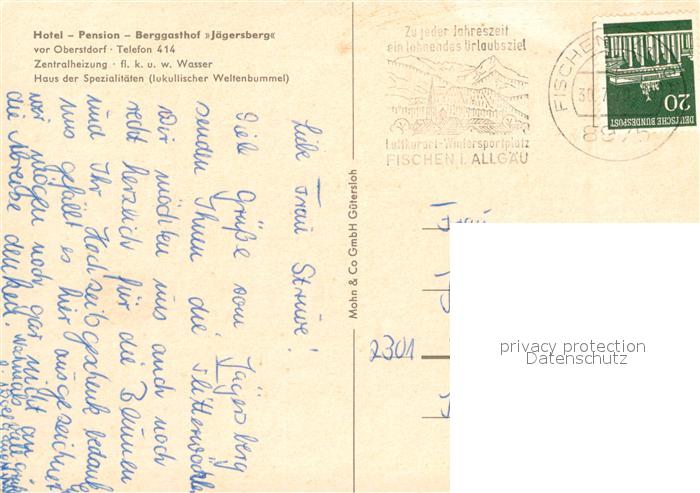 Hotel – Pension – Berggasthof »Jägersberg«
vor Oberstdorf · Telefon 414
Zentralheizung · fl. k. u. w. Wasser
Haus der Spezialitäten (lukullischer Weltenbummel)
Liebe Frau Struve!
Viele Grüße vom Jägersberg
senden Ihnen die Flitterwöchler
Wir möchten uns auch noch
recht herzlich für die Blumen
und Ihr Hochzeitsgeschenk bedank
Uns gefällt es hier ausgezeichnet
wir mögen noch gar nicht an
die Abreise denken.
Mohn & Co GmbH Gütersloh
Zu jeder Jahreszeit
ein lohnendes Urlaubsziel
Luftkurort-Wintersportplatz
FISCHEN I. ALLGÄU
FISCHEN
8975
20
DEUTSCHE BUNDESPOST
Frau
2301
privacy protection
Datenschutz